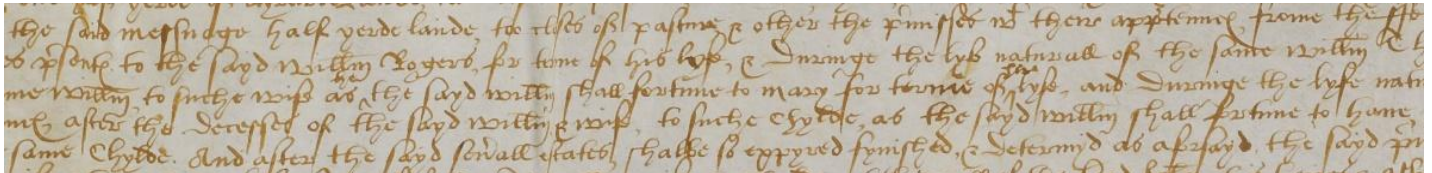 the said messuage half yerde lande, too closes off pasture & other the p'misses wt their app'ten'nc's frome the
p'sents to the sayd Will'm Rogers, for t'me of his lyfe, & duringe the lyfe naturall of the same Will'm
Will'm, to suche wife as he the sayd Will'm shall fortune to mary for terme off her lyfe, and duringe the lyfe natu
after the decesses of the sayd Will'm & wife, to suche Chylde, as the sayd Will'm shall fortune to have,
same Chylde. And after the sayd sev'all estates shalbe so expyred fynished, & determyd as afsayd, the sayd